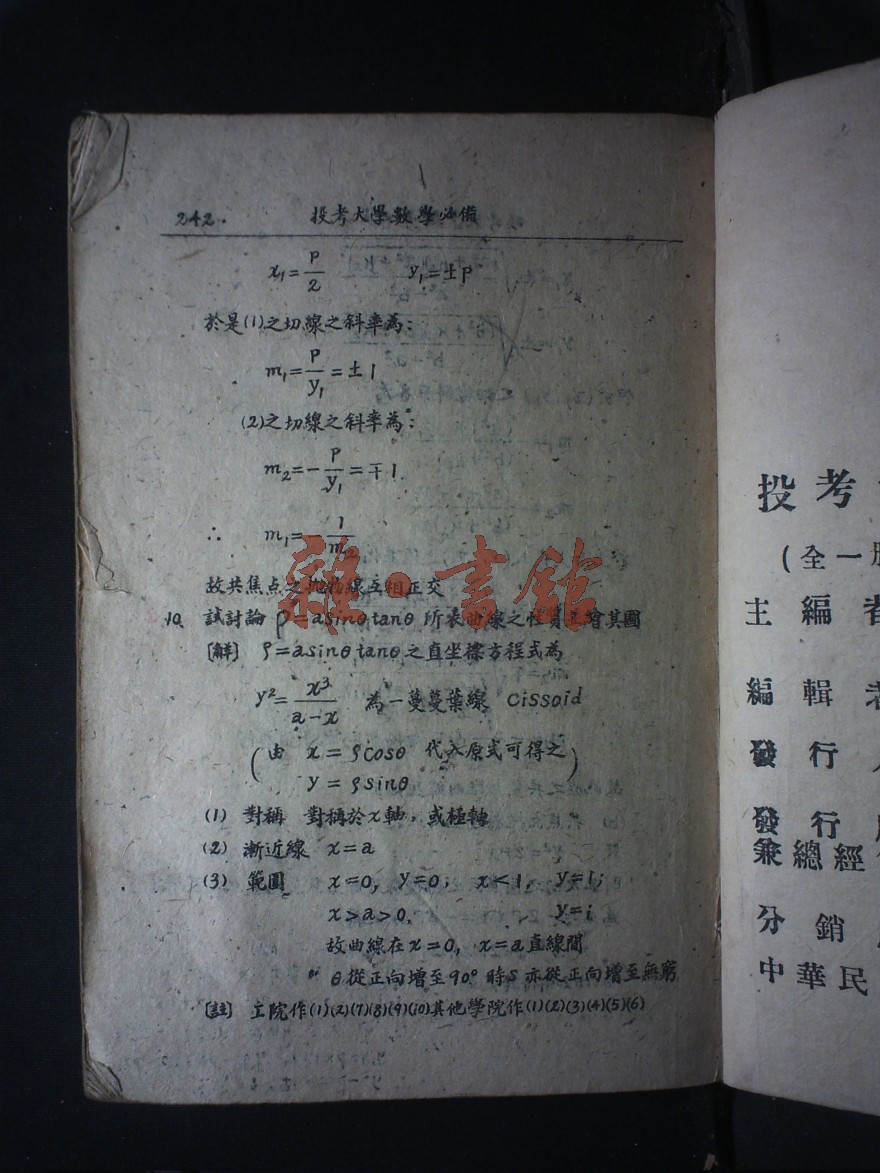 242.
投考大學數學必備
x₁=p/2 y₁=±p
於是(1)之切線之斜率為:
m₁=p/y₁=±1
(2)之切線之斜率為:
m₂=-p/y₁=∓1
∴ m₁=-1/m₂
故共焦点之拋物線互相正交
10. 試討論 ρ=asinθtanθ 所表曲線之性質並繪其圖
[解] ρ=asinθtanθ之直坐標方程式為
y²=x³/(a-x) 為一蔓葉線 Cissoid
(由 x=ρcosθ 代入原式可得之
y=ρsinθ)
(1) 對稱 對稱於x軸,或極軸
(2) 漸近線 x=a
(3) 範圍 x=0, y=0; x<1, y=1;
x>a>0, y=i
故曲線在x=0, x=a直線間
θ從正向增至90°時ρ亦從正向增至無窮
[註] 工院作(1)(2)(7)(8)(9)(10)其他學院作(1)(2)(3)(4)(5)(6)
雜·書館
投考
(全一册
主編者
編輯者
發行人
發行
兼總經
分銷
中華民